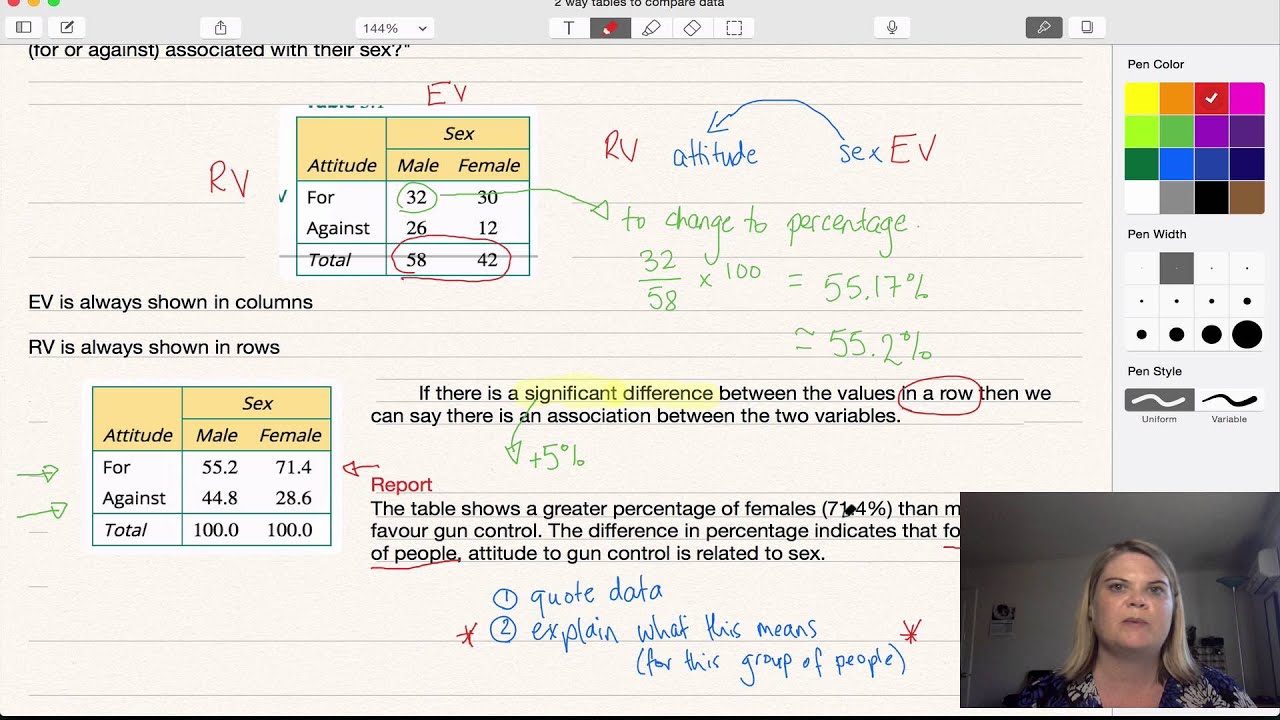 2 way tables to compare data
144%
T
(for or against) associated with their sex?"
EV
RV
Sex
Attitude Male Female
For 32 30
Against 26 12
Total 58 42
RV attitude sex EV
to change to percentage.
32
58
× 100 = 55.17%
≃ 55.2%
EV is always shown in columns
RV is always shown in rows
Sex
Attitude Male Female
For 55.2 71.4
Against 44.8 28.6
Total 100.0 100.0
If there is a significant difference between the values in a row then we
can say there is an association between the two variables.
+5%
Report
The table shows a greater percentage of females (71.4%) than
favour gun control. The difference in percentage indicates that
of people, attitude to gun control is related to sex.
① quote data
* ② explain what this means *
(for this group of people)
Pen Color
Pen Width
Pen Style
Uniform Variable